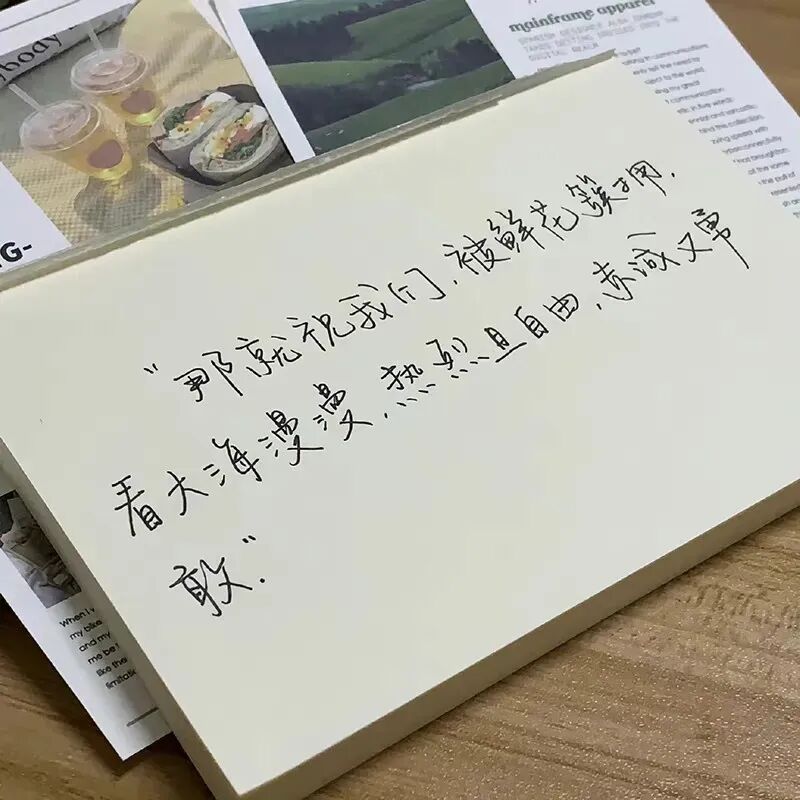 ybody
mainframe apparel
DIGITAL REALM
G-
"那就祝我们,被鲜花簇拥,
看大海漫漫,热烈且自由,赤诚又勇
敢".
When I
my bike
and my
me be
like the
limitati